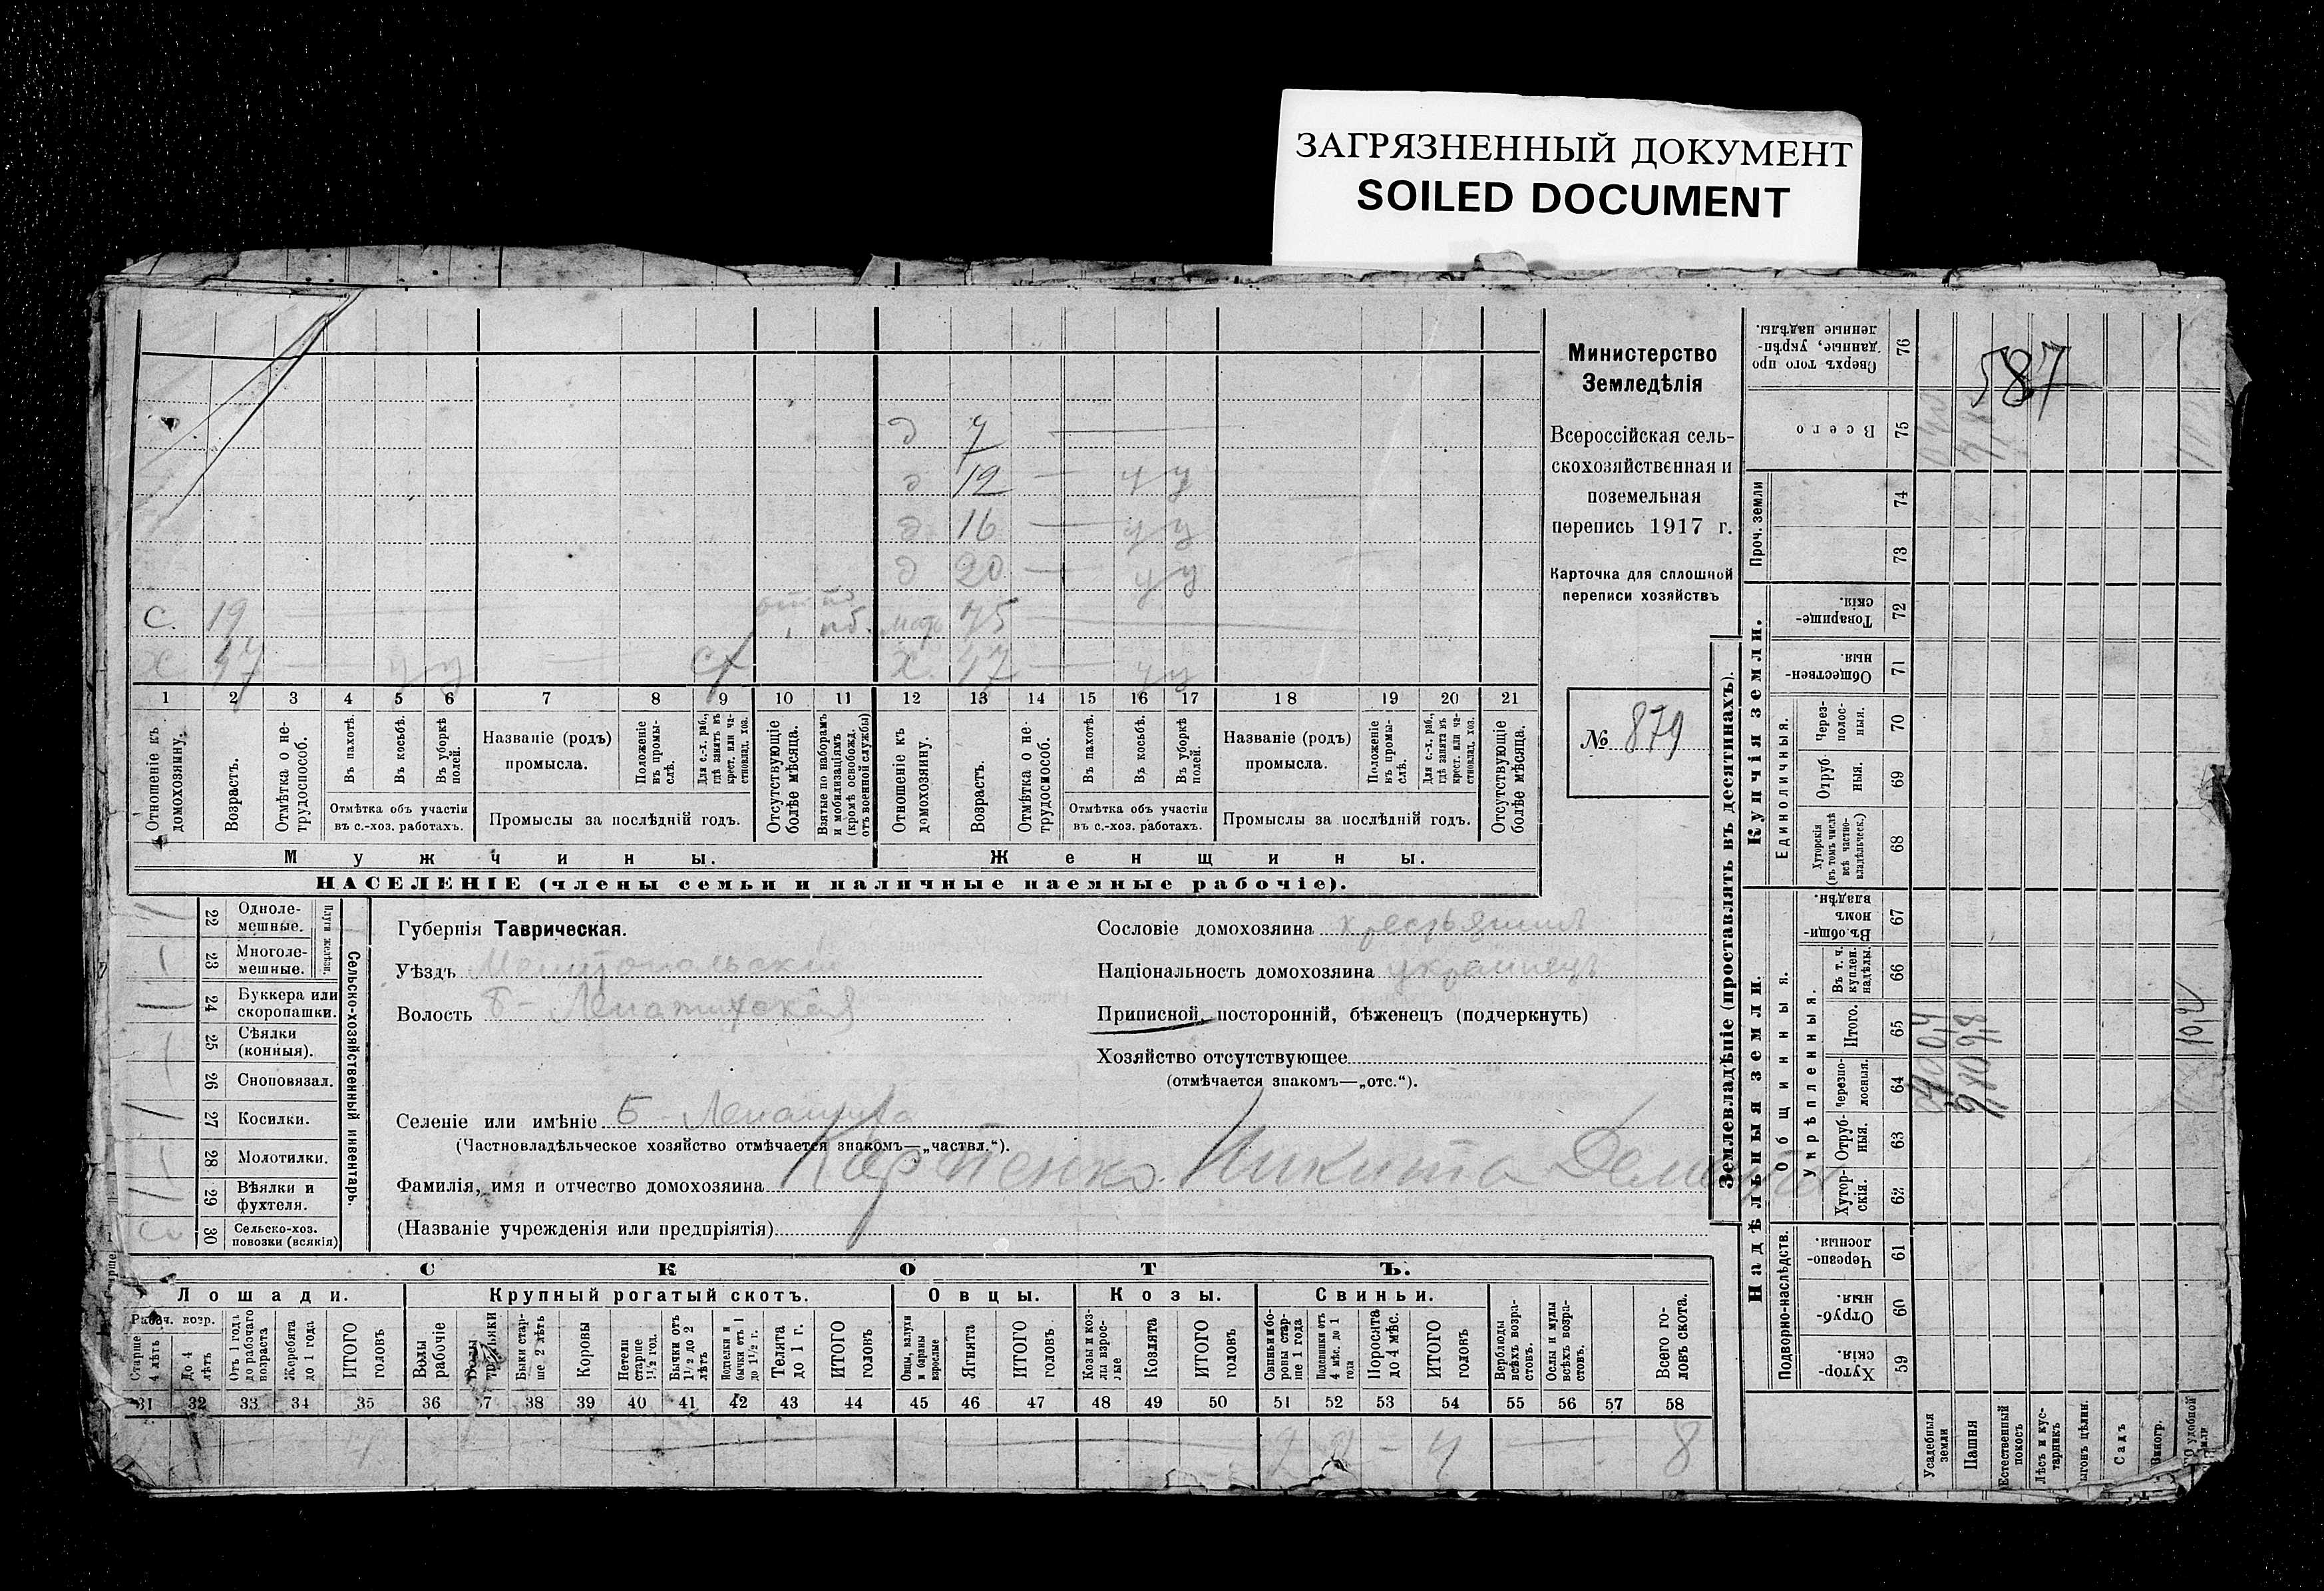 ЗАГРЯЗНЕННЫЙ ДОКУМЕНТ
SOILED DOCUMENT
д 7
д 12 — у у
д 16 — у у
д 20 — у у
с. 19
мать 75
х. 47 — у у
х. 47 — у у
1 2 3 4 5 6 7 8 9 10 11 12 13 14 15 16 17 18 19 20 21
Отношеніе къ домохозяину.
Возрастъ.
Отмѣтка о не-трудоспособ.
Въ пахотѣ.
Въ косьбѣ.
Въ уборкѣ полей.
Отмѣтка объ участіи
въ с.-хоз. работахъ.
Названіе (родъ)
промысла.
Положеніе въ промы-слѣ.
Для с.-х. раб., гдѣ занятъ въ крест. или ча-стновлад. хоз.
Промыслы за послѣдній годъ.
Отсутствующіе болѣе мѣсяца.
Взятые по наборамъ и мобилизаціямъ (кромѣ освобожд. отъ военной службы)
Отношеніе къ домохозяину.
Возрастъ.
Отмѣтка о не-трудоспособ.
Въ пахотѣ.
Въ косьбѣ.
Въ уборкѣ полей.
Отмѣтка объ участіи
въ с.-хоз. работахъ.
Названіе (родъ)
промысла.
Положеніе въ промы-слѣ.
Для с.-х. раб., гдѣ занята въ крест. или ча-стновлад. хоз.
Промыслы за послѣдній годъ.
Отсутствующіе болѣе мѣсяца.
Мужчины.
Женщины.
НАСЕЛЕНІЕ (члены семьи и наличные наемные рабочіе).
Министерство
Земледѣлія
Всероссійская сель-
скохозяйственная и
поземельная
перепись 1917 г.
Карточка для сплошной
переписи хозяйствъ
№ 879
587
22 Одноле-мешные.
23 Многоле-мешные.
Плуги желѣзн.
24 Буккера или скоропашки.
25 Сѣялки (конныя).
26 Сноповязал.
27 Косилки.
28 Молотилки.
29 Вѣялки и фухтеля.
30 Сельско-хоз. повозки (всякія)
Сельско-хозяйственный инвентарь.
Губернія Таврическая.
Уѣздъ Мелитопольскій
Волость Б - Лепатихская
Селеніе или имѣніе Б - Лепатиха
(Частновладѣльческое хозяйство отмѣчается знакомъ—„частвл.“).
Фамилія, имя и отчество домохозяина Карпенко Никита
(Названіе учрежденія или предпріятія)
Сословіе домохозяина крестьянинъ
Національность домохозяина украинецъ
Приписной, посторонній, бѣженецъ (подчеркнуть)
Хозяйство отсутствующее
(отмѣчается знакомъ—„отс.“).
СКОТЪ.
Лошади.
Крупный рогатый скотъ.
Овцы.
Козы.
Свиньи.
Рабоч. возр.
Старше 4 лѣтъ
До 4 лѣтъ
Отъ 1 года до рабочаго возраста
Жеребята до 1 года
ИТОГО головъ
Волы рабочіе
Быки стар-ше 2 лѣтъ
Коровы
Нетели старше 1½ год.
Бычки отъ 1½ до 2 лѣтъ
Подтелки и бычки отъ 1 до 1½ г.
Телята до 1 г.
ИТОГО головъ
Овцы, валухи и бараны взрослые
Ягнята
ИТОГО головъ
Козы и коз-лы взрос-лые
Козлята
ИТОГО головъ
Свиньи бо-ровы стар-ше 1 года
Подсвинки отъ 4 мѣс. до 1 года
Поросята до 4 мѣс.
ИТОГО головъ
Верблюды всѣхъ возра-стовъ.
Ослы и мулы всѣхъ возра-стовъ.
Всего го-ловъ скота.
31 32 33 34 35 36 37 38 39 40 41 42 43 44 45 46 47 48 49 50 51 52 53 54 55 56 57 58
2 2 — 4 — 8
Землевладѣніе (проставлять въ десятинахъ).
Купчія земли.
Надѣльныя земли.
Сверхъ того про-данные, укрѣп-ленные надѣлы. 76
Всего 75
Проч. земли 74 73
Товарище-скія. 72
Обществен-ныя. 71
Единоличныя.
Через-полос-ныя. 70
Отруб-ныя. 69
Хуторскія (въ томъ числѣ всѣ частно-владѣльческ.) 68
Въ общи-номъ владѣн. 67
Общинныя.
Укрѣпленныя.
Въ т. ч. куплен. надѣлы. 66
Итого. 65
Черезпо-лосныя. 64
Отруб-ныя. 63
Хутор-скія. 62
Подворно-наслѣдств.
Черезпо-лосныя. 61
Отруб-ныя. 60
Хутор-скія. 59
Усадебныя земли
Пашня
Естественный покосъ
Лѣсъ и кус-тарникъ
Садъ